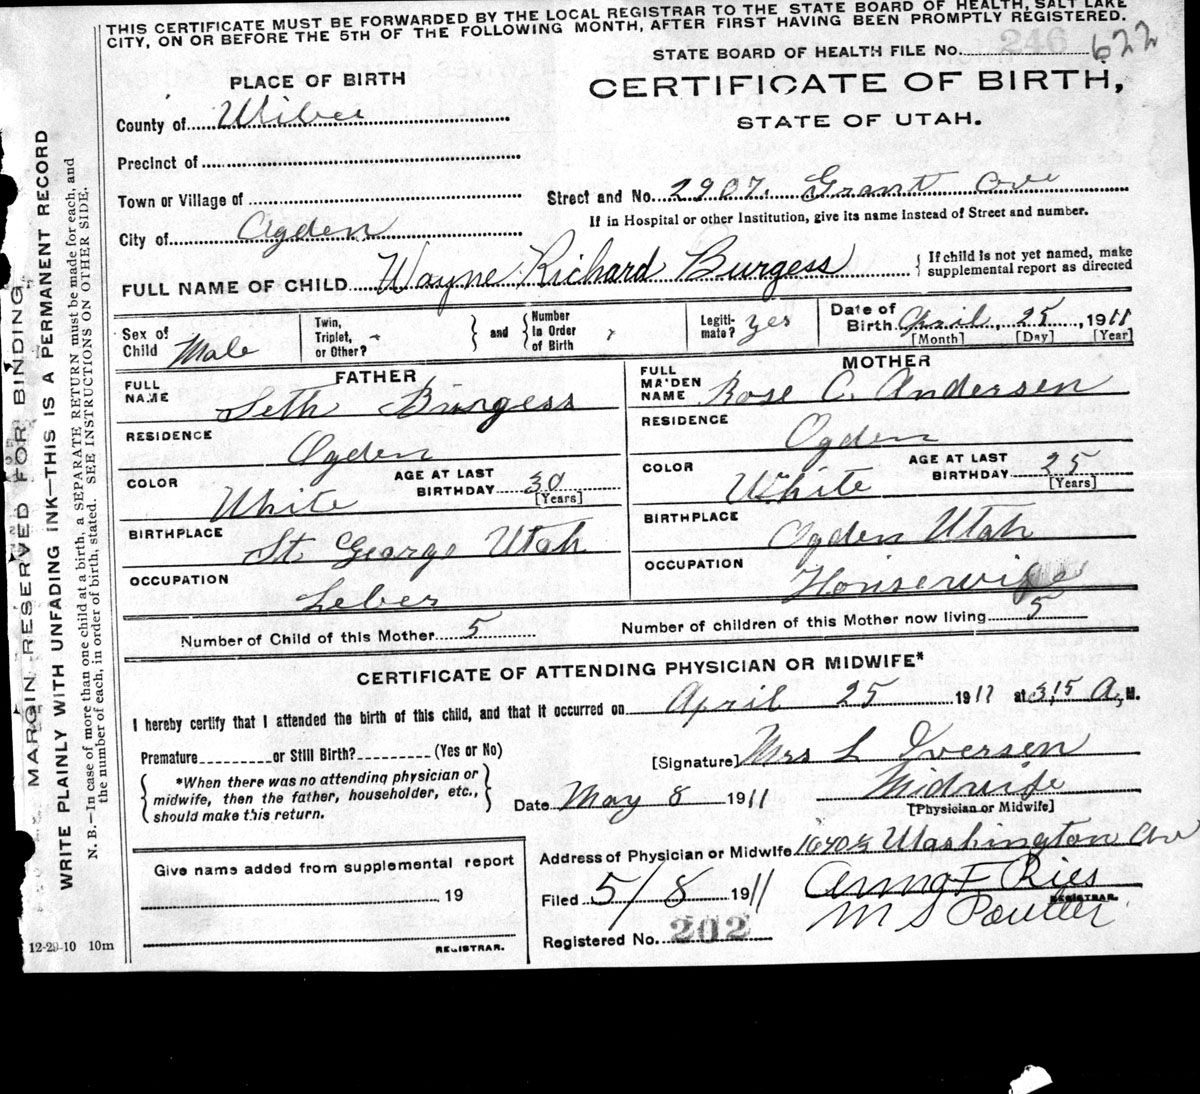 THIS CERTIFICATE MUST BE FORWARDED BY THE LOCAL REGISTRAR TO THE STATE BOARD OF HEALTH, SALT LAKE
CITY, ON OR BEFORE THE 5TH OF THE FOLLOWING MONTH, AFTER FIRST HAVING BEEN PROMPTLY REGISTERED.
STATE BOARD OF HEALTH FILE No. 246 622
PLACE OF BIRTH
CERTIFICATE OF BIRTH,
STATE OF UTAH.
County of Weber
Precinct of
Town or Village of
Street and No. 2907. Grant Ave
If in Hospital or other Institution, give its name instead of Street and number.
City of Ogden
FULL NAME OF CHILD Wayne Richard Burgess
If child is not yet named, make
supplemental report as directed
Sex of
Child Male
Twin,
Triplet,
or Other?
and
Number
in Order
of Birth
Legiti-
mate? Yes
Date of
Birth April, 25, 1911
[Month] [Day] [Year]
FATHER
FULL
NAME Seth Burgess
RESIDENCE
Ogden
COLOR White
AGE AT LAST
BIRTHDAY 30
[Years]
BIRTHPLACE
St George Utah
OCCUPATION
Leber
MOTHER
FULL
MAIDEN
NAME Rose C. Andersen
RESIDENCE
Ogden
COLOR White
AGE AT LAST
BIRTHDAY 25
[Years]
BIRTHPLACE
Ogden Utah
OCCUPATION
Housewife
Number of Child of this Mother 5
Number of children of this Mother now living 5
CERTIFICATE OF ATTENDING PHYSICIAN OR MIDWIFE*
I hereby certify that I attended the birth of this child, and that it occurred on April 25 1911 at 3,15 A, M.
Premature or Still Birth? (Yes or No)
*When there was no attending physician or
midwife, then the father, householder, etc.,
should make this return.
[Signature] Mrs L Iversen
Midwife
Date May 8 1911
[Physician or Midwife]
Address of Physician or Midwife 1640½ Washington Ave
Filed 5/8 1911
Anna F Ries
REGISTRAR.
M S Poulter
Registered No. 202
Give name added from supplemental report
19
REGISTRAR.
12-29-10 10m
MARGIN RESERVED FOR BINDING
WRITE PLAINLY WITH UNFADING INK—THIS IS A PERMANENT RECORD
N. B.—In case of more than one child at a birth, a SEPARATE RETURN must be made for each, and
the number of each, in order of birth, stated. SEE INSTRUCTIONS ON OTHER SIDE.